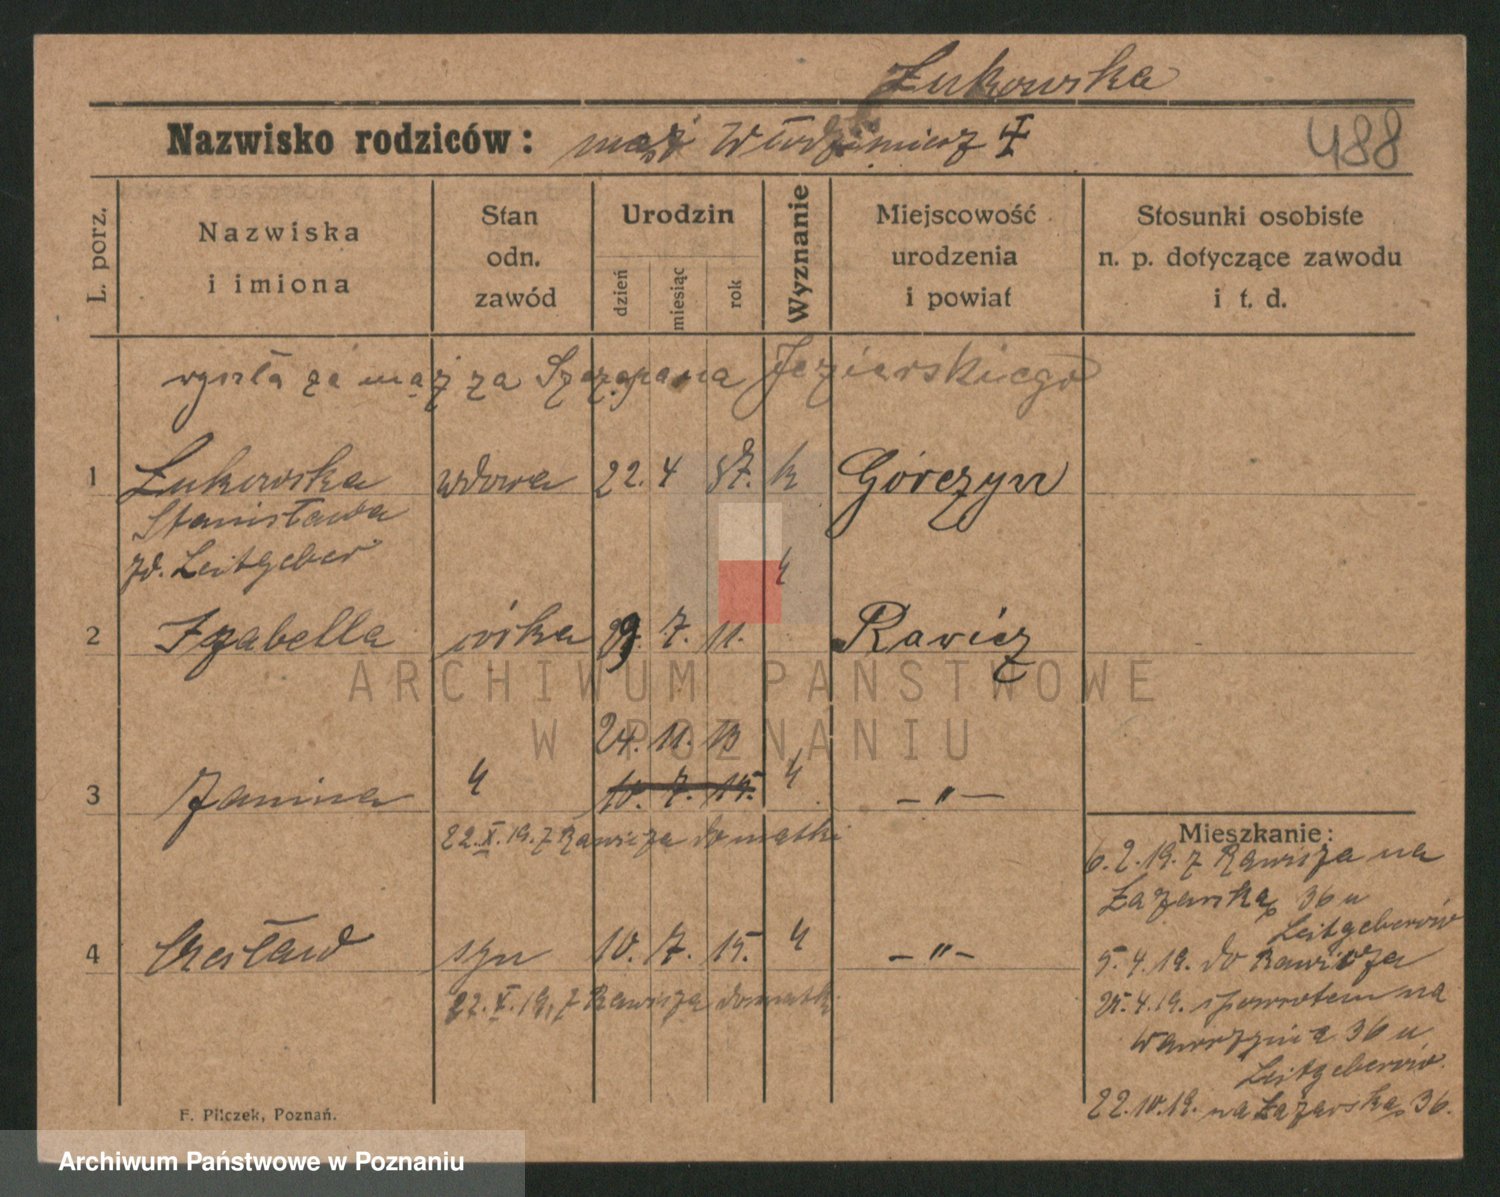 Żukowska
Nazwisko rodziców: mąż Włodzimierz
488
L. porz.
Nazwiska
i imiona
Stan
odn.
zawód
Urodzin
dzień
miesiąc
rok
Wyznanie
Miejscowość
urodzenia
i powiat
Stosunki osobiste
n. p. dotyczące zawodu
i t. d.
wyszła za mąż za Szczepana Jezierskiego
1 Żukowska wdowa 22. 4 87. k Górczyn
Stanisława
zd. Leitgeber
2 Izabella córka 7. 11. Rawicz
24. 11. 13
3 Janina 10. 7. 15. — " —
22.X.19. z Rawicza do matki
4 Czesław syn 10. 7. 15. — " —
22.X.19. z Rawicza do matki
Mieszkanie:
6.2.19. z Rawicza na
Łazarską 36 u
Leitgeberów
5.4.19. do Rawicza
25.4.19. spowrotem na
36 u
Leitgeberów
22.10.19. na Łazarską 36.
F. Pilczek, Poznań.
ARCHIWUM PAŃSTWOWE
W POZNANIU
Archiwum Państwowe w Poznaniu